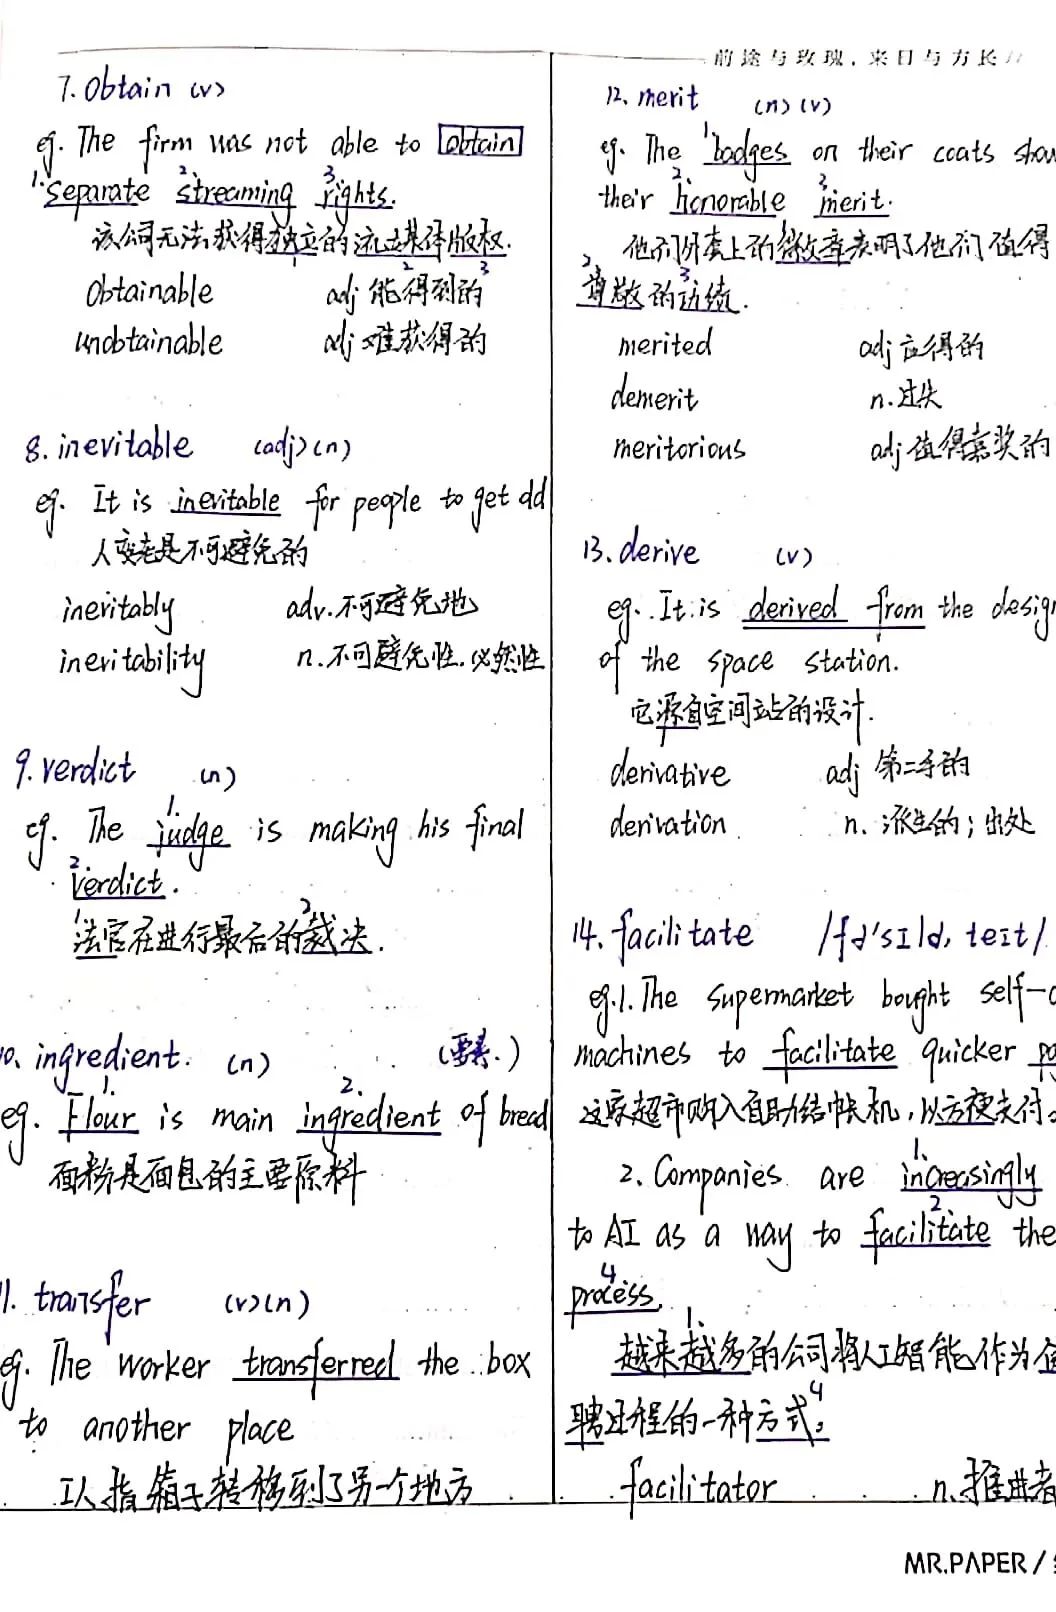 前途与玫瑰，来日与方长 //
7. Obtain (v)
eg. The firm was not able to obtain
1. separate 2. streaming 3. rights.
该公司无法获得独立的流媒体版权.
1 2 3
Obtainable adj 能得到的
unobtainable adj 难获得的
8. inevitable (adj) (n)
eg. It is inevitable for people to get old
人变老是不可避免的
inevitably adv. 不可避免地
inevitability n. 不可避免性. 必然性
9. verdict (n)
1.
eg. The judge is making his final
2. verdict.
1 2
法官在进行最后的裁决.
10. ingredient. (n) (要素.)
1. 2.
eg. Flour is main ingredient of bread
面粉是面包的主要原料
11. transfer (v) (n)
eg. The worker transferred the box
to another place
工人指箱子转移到了另一个地方
12. merit (n) (v)
eg. The 1 badges on their coats show
their 2. honorable 3 merit.
他们外套上的徽章表明了他们值得
尊敬的功绩.
merited adj 应得的
demerit n. 过失
meritorious adj 值得嘉奖的
13. derive (v)
eg. It is derived from the design
of the space station.
它源自空间站的设计.
derivative adj 第二手的
derivation n. 派生的; 出处
14. facilitate /fə'sɪlə,teɪt/
eg. 1. The supermarket bought self-c
machines to facilitate quicker pa
这家超市购入自助结帐机, 以方便支付.
2. Companies are 1. increasingly
to AI as a way to 2. facilitate the
4 process.
1.
越来越多的公司将人工智能作为促
聘过程的一种方式. 4
facilitator n. 推进者
MR.PAPER /